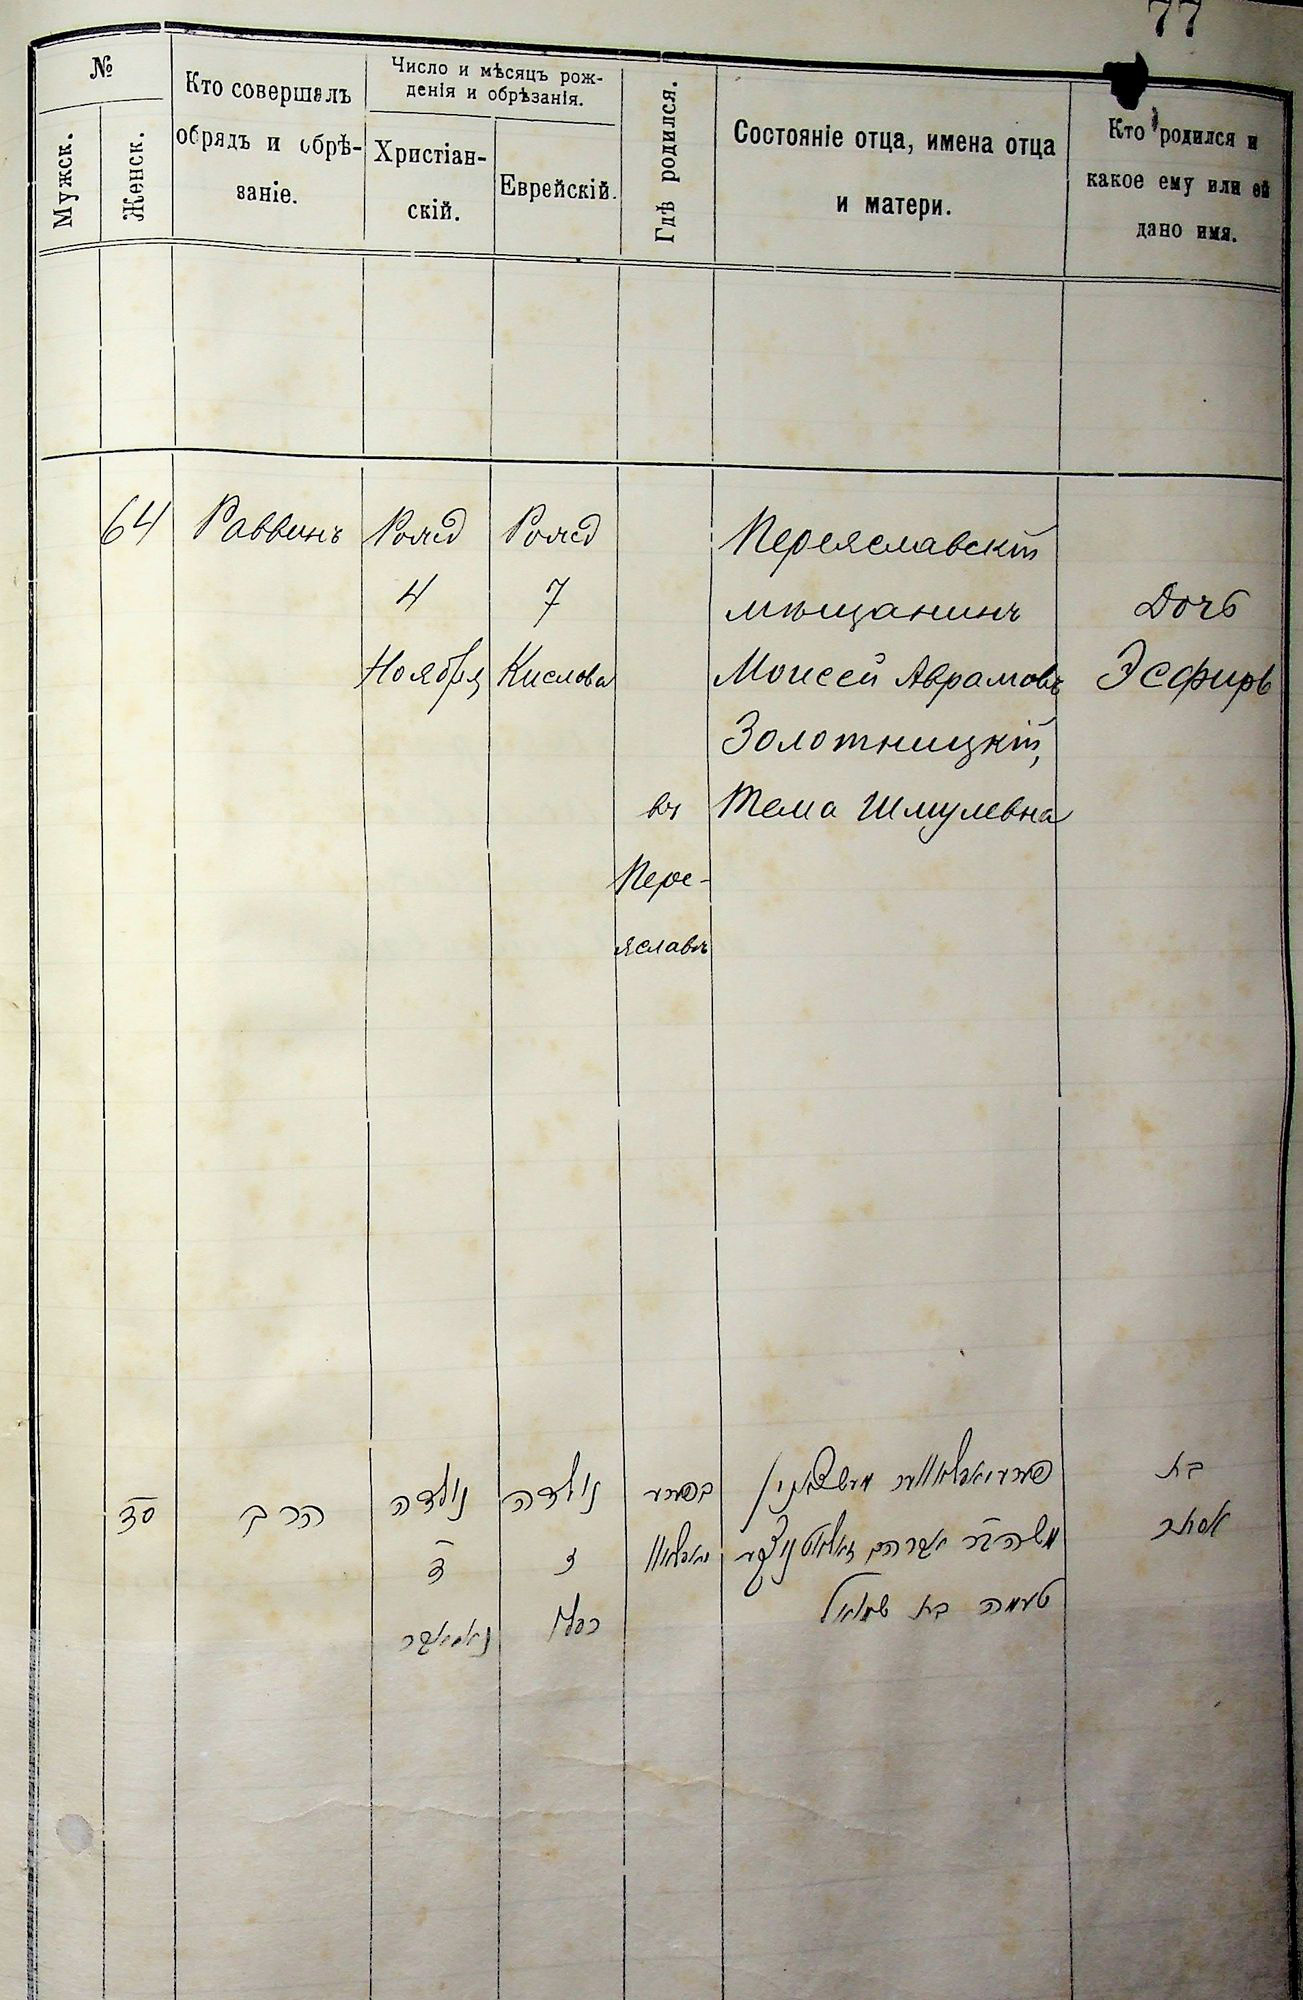 77
№
Мужск.
Женск.
Кто совершалъ
обрядъ и обрѣ-
заніе.
Число и мѣсяцъ рож-
денія и обрѣзанія.
Христіан-
скій.
Еврейскій.
Гдѣ родился.
Состояніе отца, имена отца
и матери.
Кто родился и
какое ему или ей
дано имя.
64
Раввинъ
Рожд
4
Ноября
Рожд
7
Кислова
въ
Пере-
яславѣ
Переяславскій
мѣщанинъ
Моисей Аврамовъ
Золотницкій,
Тема Шмулевна
Дочь
Эсфирь
סד
הרב
נולדה
ד
נאיאבר
נולדה
ז
כסלו
בפערע
יאסלאוו
משה בר אברהם זאלאטניצקי
טעמה בת שמואל
בת
אסתר